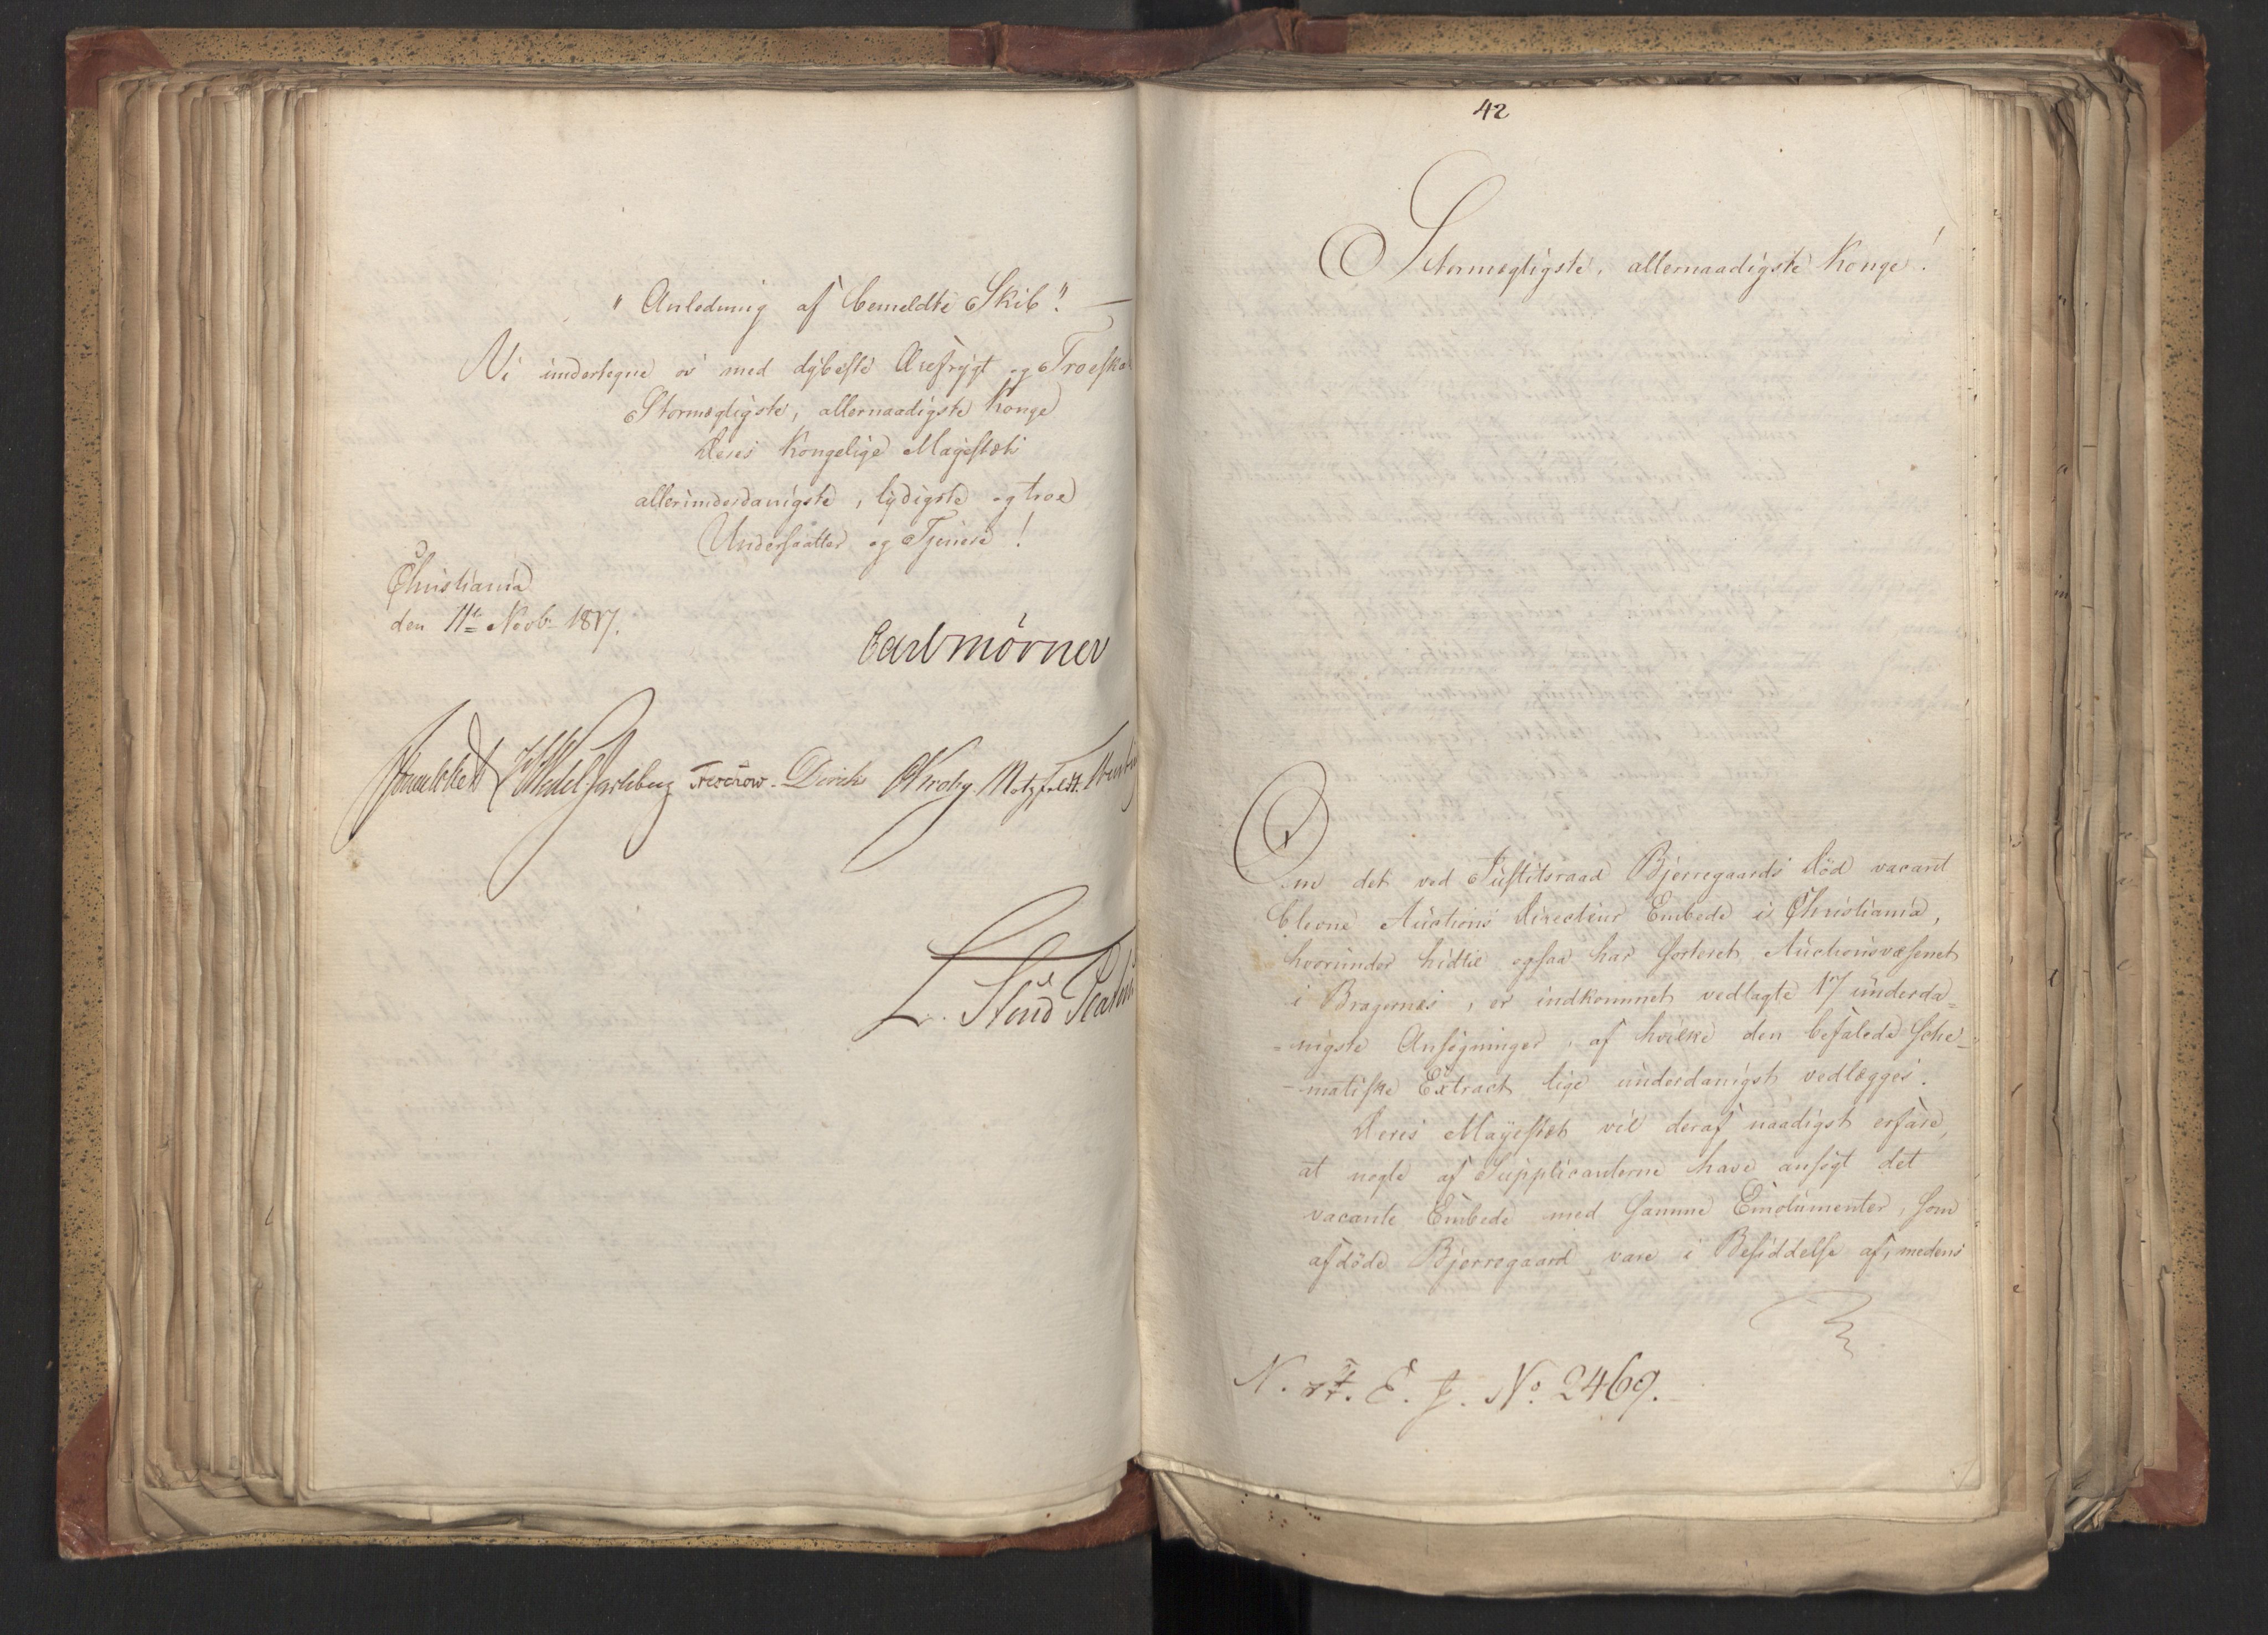 "Anledning af bemeldte Skib". —
Vi undertegne os med dybeste Ærefrygt og Troeska
Stormægtigste, allernaadigste Konge
Deres Kongelige Majestæts
allerunderdanigste, lydigste og troe
Undersaatter og Tjenere!
Christiania
den 11te Novb. 1817.
Carl Mörner
Sommerhielm HWedel Jarlsberg Treschow. Diriks CKrohg Motzfeldt.
L. Stoud Platou
42
Stormægtigste, allernaadigste Konge!
Om det ved Justitsraad Bjerregaards Död vacant
blevne Auctions Directeur Embede i Christiania,
hvorunder hidtil ogsaa har sorteret Auctionsvæsenet
i Bragernes, er indkommet vedlagte 17 underda=
=nigste Ansøgninger, af hvilke den befalede sche=
=matiske Extract lige underdanigst vedlægges.
Deres Majestæt vil deraf naadigst erfare,
at nogle af Supplicanterne have ansøgt det
vacante Embede med samme Emolumenter, som
afdöde Bjerregaard vare i Besiddelse af, medens
E. J. No. 2469.